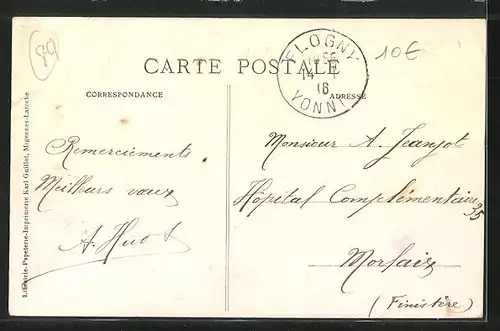 89
10€
CARTE POSTALE
FLOGNY
14
16
YONNE
CORRESPONDANCE
ADRESSE
Remerciements
Meilleurs vœux
A. Huot
Monsieur A. Jeanjot
Hôpital Complémentaire
35
Morlaix
(Finistère)
Librairie-Papeterie-Imprimerie Karl Guillot, Migennes-Laroche